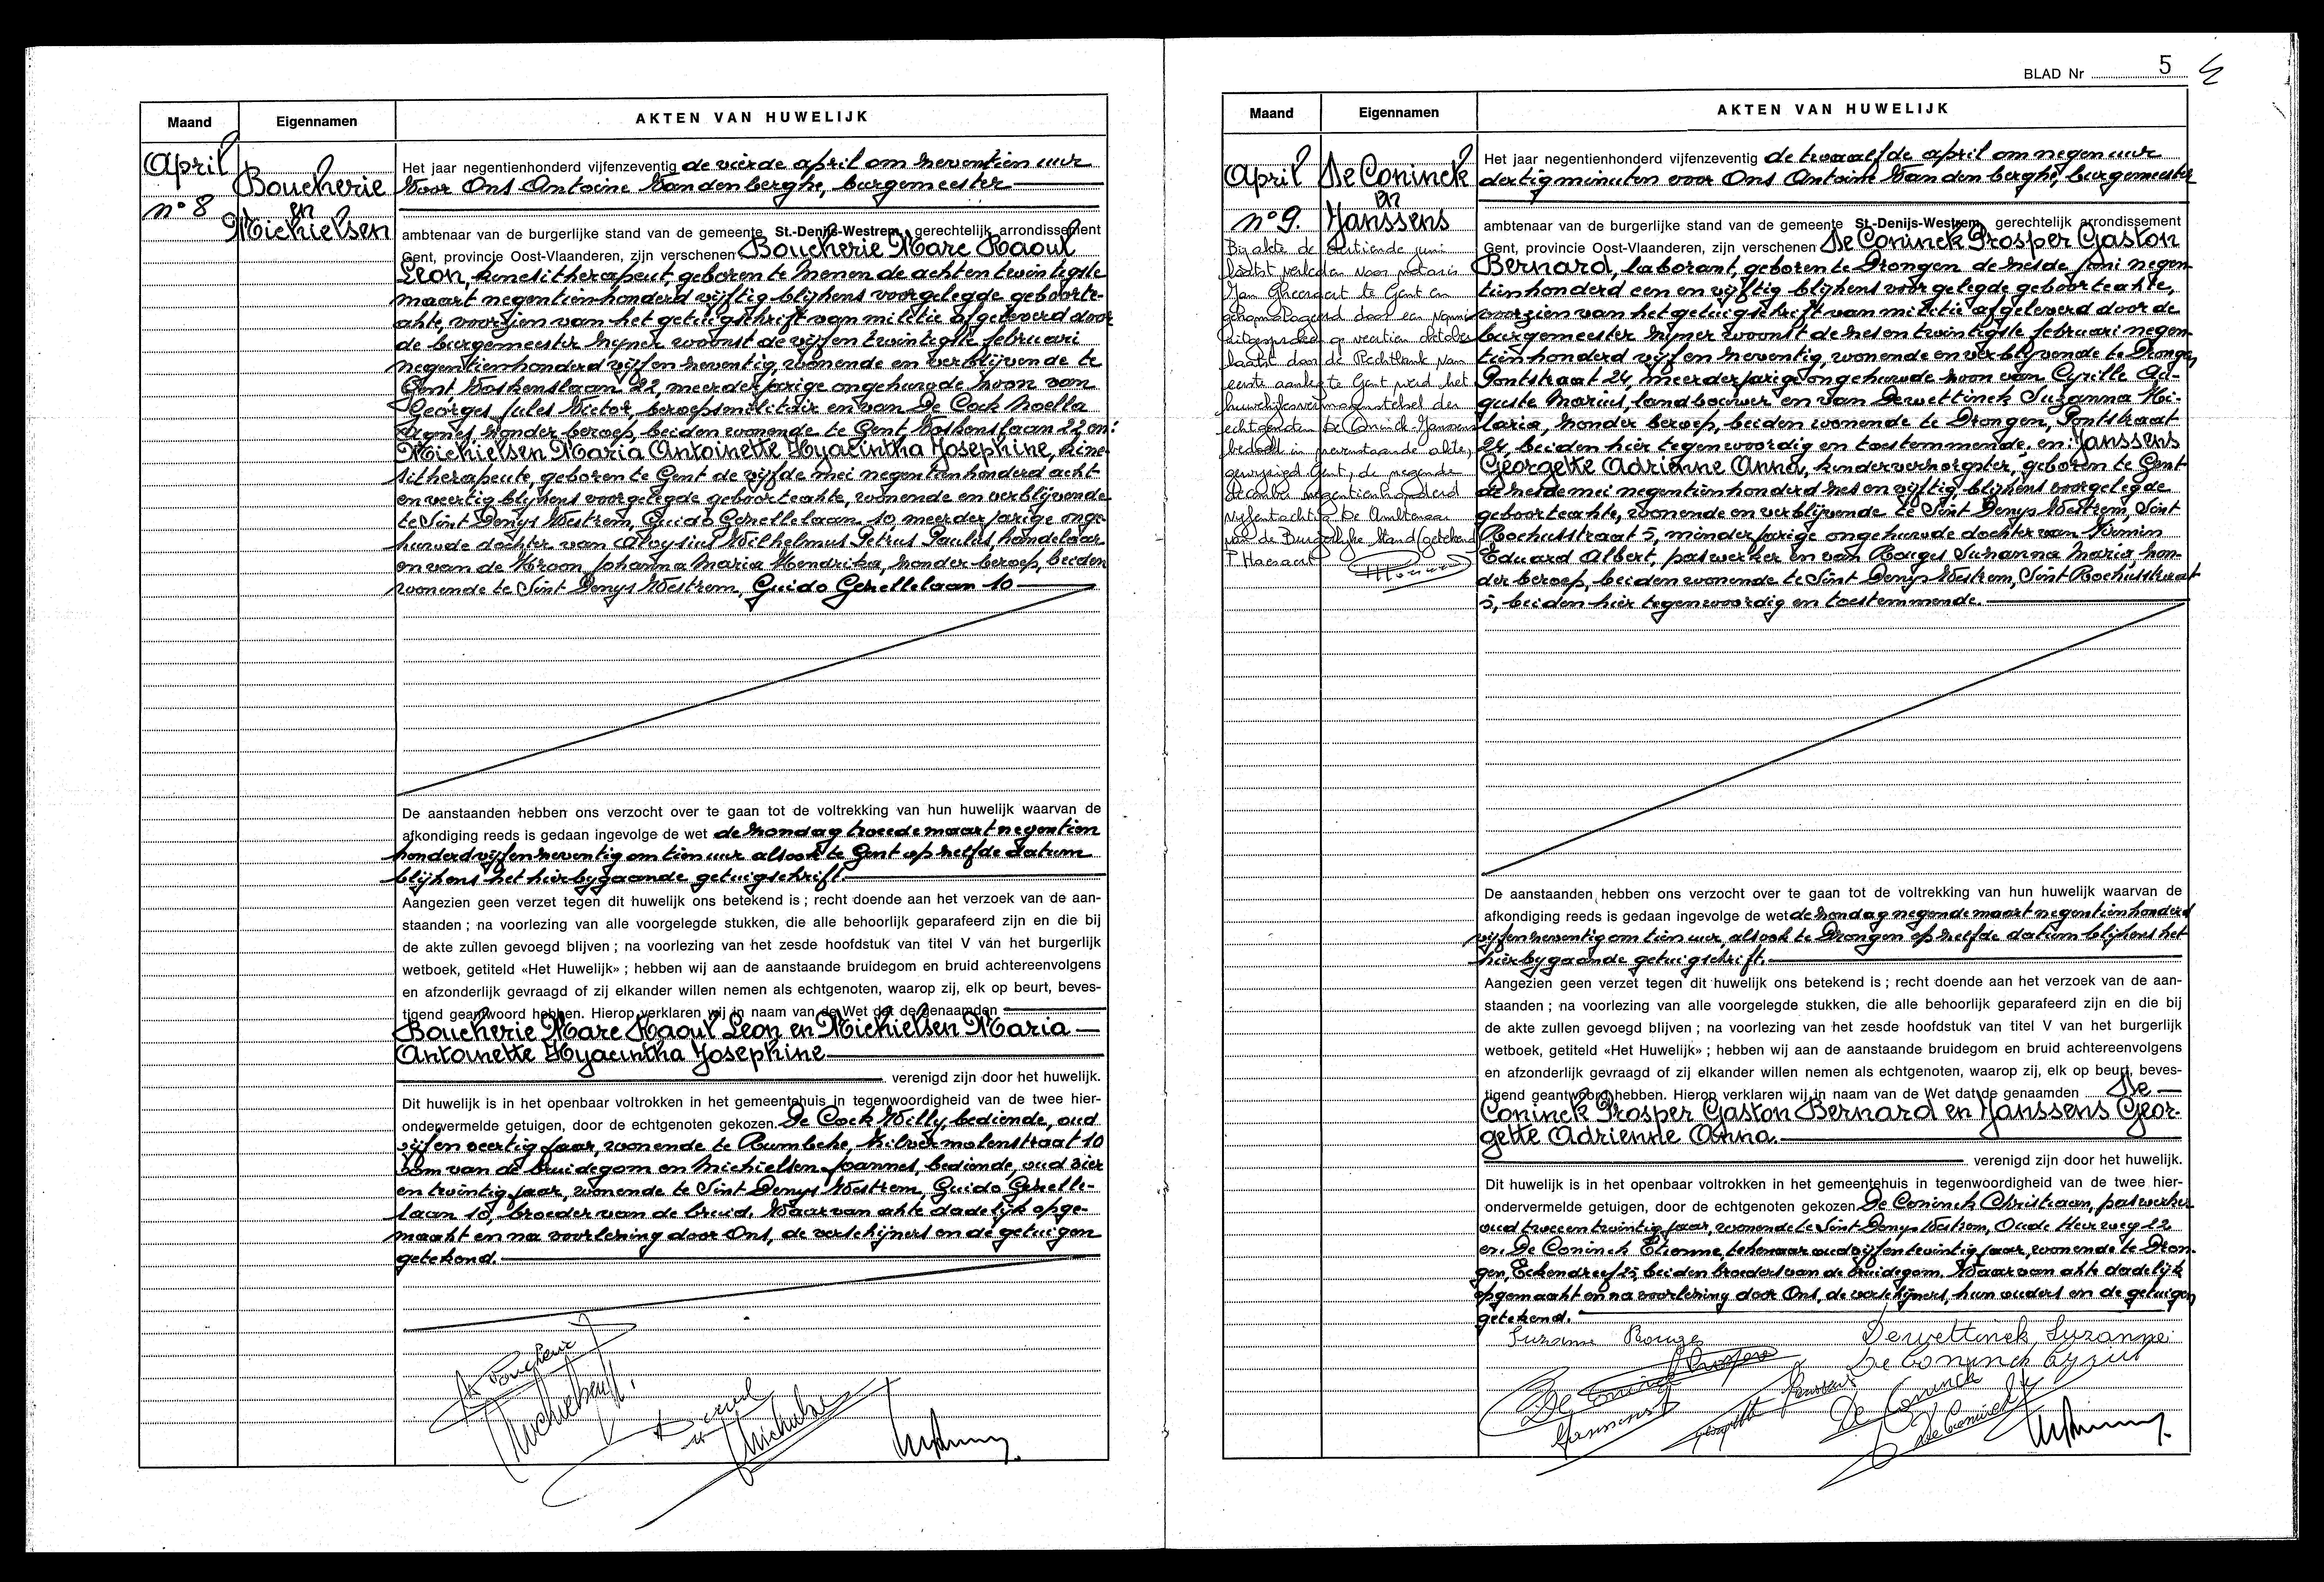 Maand
Eigennamen
AKTEN VAN HUWELIJK
April
n° 8
Boucherie
en
Michielsen
Het jaar negentienhonderd vijfenzeventig de vierde april om zeventien uur
Voor Ons Antoine Vandenberghe, burgemeester
ambtenaar van de burgerlijke stand van de gemeente St.-Denijs-Westrem, gerechtelijk arrondissement
Gent, provincie Oost-Vlaanderen, zijn verschenen Boucherie Marc Raoul
Leon, kinesitherapeut, geboren te Menen de achtentwintigste
maart negentienhonderd vijftig blijkens voorgelegde geboorte-
akte, voorzien van het getuigschrift van militie afgeleverd door
de burgemeester zijner woonst de vijfentwintigste februari
negentienhonderd vijfenzeventig, wonende en verblijvende te
Gent, Voskenslaan 22, meerderjarige ongehuwde zoon van
Georges Jules Victor, beroepsmilitair en van De Cock Noella
Agnes, zonder beroep, beiden wonende te Gent Voskenslaan 22 en:
Michielsen Maria Antoinette Hyacintha Josephine, kine-
sitherapeute, geboren te Gent de vijfde mei negentienhonderd acht
en veertig blijkens voorgelegde geboorteakte, wonende en verblijvende
te Sint Denys Westrem, Guido Gezellelaan 10, meerderjarige onge-
huwde dochter van Aloysius Wilhelmus Petrus Paulus, handelaar
en van de Kroon Johanna Maria Hendrika, zonder beroep, beiden
wonende te Sint Denys Westrem, Guido Gezellelaan 10
De aanstaanden hebben ons verzocht over te gaan tot de voltrekking van hun huwelijk waarvan de
afkondiging reeds is gedaan ingevolge de wet de zondag tweede maart negentien
honderd vijfenzeventig om tien uur alsook te Gent op zelfde datum
blijkens het hierbygaande getuigschrift.
Aangezien geen verzet tegen dit huwelijk ons betekend is ; recht doende aan het verzoek van de aan-
staanden ; na voorlezing van alle voorgelegde stukken, die alle behoorlijk geparafeerd zijn en die bij
de akte zullen gevoegd blijven ; na voorlezing van het zesde hoofdstuk van titel V van het burgerlijk
wetboek, getiteld «Het Huwelijk» ; hebben wij aan de aanstaande bruidegom en bruid achtereenvolgens
en afzonderlijk gevraagd of zij elkander willen nemen als echtgenoten, waarop zij, elk op beurt, beves-
tigend geantwoord hebben. Hierop verklaren wij in naam van de Wet dat de genaamden
Boucherie Marc Raoul Leon en Michielsen Maria
Antoinette Hyacintha Josephine
verenigd zijn door het huwelijk.
Dit huwelijk is in het openbaar voltrokken in het gemeentehuis in tegenwoordigheid van de twee hier-
ondervermelde getuigen, door de echtgenoten gekozen. De Cock Willy, bediende, oud
vijfenveertig jaar, wonende te Rumbeke, Zilvermolenstraat 10
oom van de bruidegom en Michielsen Joannes, bediende, oud vier
en twintig jaar, wonende te Sint Denys Westrem, Guido Gezelle-
laan 10, broeder van de bruid. Waarvan akte dadelijk opge-
maakt en na voorlezing door Ons, de verschijners en de getuigen
getekend.
BLAD Nr 5
Maand
Eigennamen
AKTEN VAN HUWELIJK
April
n° 9.
De Coninck
en
Janssens
By akte de dertiende juni
laatst verleden voor notaris
Jan Gheeraert te Gent en
gehomologeerd door een vonnis
uitgesproken op veertien oktober
laatst door de Rechtbank van
eerste aanleg te Gent werd het
huwelijksvermogenstelsel der
echtgenoten De Coninck-Janssens
bedoeld in nevenstaande akte,
gewijzigd. Gent, de negende
december negentienhonderd
vijfentachtig De Ambtenaar
van de Burgerlijke Stand (getekend)
Het jaar negentienhonderd vijfenzeventig de twaalfde april om negen uur
dertig minuten voor Ons Antoine Vandenberghe, burgemeester
ambtenaar van de burgerlijke stand van de gemeente St.-Denijs-Westrem, gerechtelijk arrondissement
Gent, provincie Oost-Vlaanderen, zijn verschenen De Coninck Prosper Gaston
Bernard, laborant, geboren te Drongen de zesde juni negen-
tienhonderd een en vijftig blijkens voorgelegde geboorteakte,
voorzien van het getuigschrift van militie afgeleverd door de
burgemeester zijner woonst de zesentwintigste februari negen-
tienhonderd vijfenzeventig, wonende en verblijvende te Drongen
Pontstraat 24, meerderjarige ongehuwde zoon van Cyrille Au-
guste Marius, landbouwer en van Dewettinck Suzanna Hi-
laria, zonder beroep, beiden wonende te Drongen, Pontstraat
24, beiden hier tegenwoordig en toestemmende. en: Janssens
Georgette Adrienne Anna, kinderverzorgster, geboren te Gent
de zesde mei negentienhonderd zesenvijftig, blijkens voorgelegde
geboorteakte, wonende en verblijvende te Sint Denys Westrem, Sint
Rochusstraat 5, minderjarige ongehuwde dochter van Firmin
Eduard Albert, paswerker en van Rouges Suzanna Maria, zon-
der beroep, beiden wonende te Sint Denys Westrem, Sint Rochusstraat
5, beiden hier tegenwoordig en toestemmende.
De aanstaanden hebben ons verzocht over te gaan tot de voltrekking van hun huwelijk waarvan de
afkondiging reeds is gedaan ingevolge de wet de zondag negende maart negentienhonderd
vijfenzeventig om tien uur, alsook te Drongen op zelfde datum blijkens het
hierbygaande getuigschrift.
Aangezien geen verzet tegen dit huwelijk ons betekend is ; recht doende aan het verzoek van de aan-
staanden ; na voorlezing van alle voorgelegde stukken, die alle behoorlijk geparafeerd zijn en die bij
de akte zullen gevoegd blijven ; na voorlezing van het zesde hoofdstuk van titel V van het burgerlijk
wetboek, getiteld «Het Huwelijk» ; hebben wij aan de aanstaande bruidegom en bruid achtereenvolgens
en afzonderlijk gevraagd of zij elkander willen nemen als echtgenoten, waarop zij, elk op beurt, beves-
tigend geantwoord hebben. Hierop verklaren wij in naam van de Wet dat de genaamden De
Coninck Prosper Gaston Bernard en Janssens Geor-
gette Adrienne Anna.
verenigd zijn door het huwelijk.
Dit huwelijk is in het openbaar voltrokken in het gemeentehuis in tegenwoordigheid van de twee hier-
ondervermelde getuigen, door de echtgenoten gekozen. De Coninck Christiaan, paswerker
oud tweeentwintig jaar, wonende te Sint Denys Westrem, Oude Heirweg 22
en De Coninck Etienne, tekenaar oud vijfentwintig jaar, wonende te Dron-
gen, Eekendreef 25, beiden broeders van de bruidegom. Waarvan akte dadelijk
opgemaakt en na voorlezing door Ons, de verschijners, hun ouders en de getuigen
getekend.
Suzanne Rouges
Dewettinck Suzanne
De Coninck Prosper
De Coninck Cyriel
Janssens
Georgette Janssens
De Coninck
De Coninck